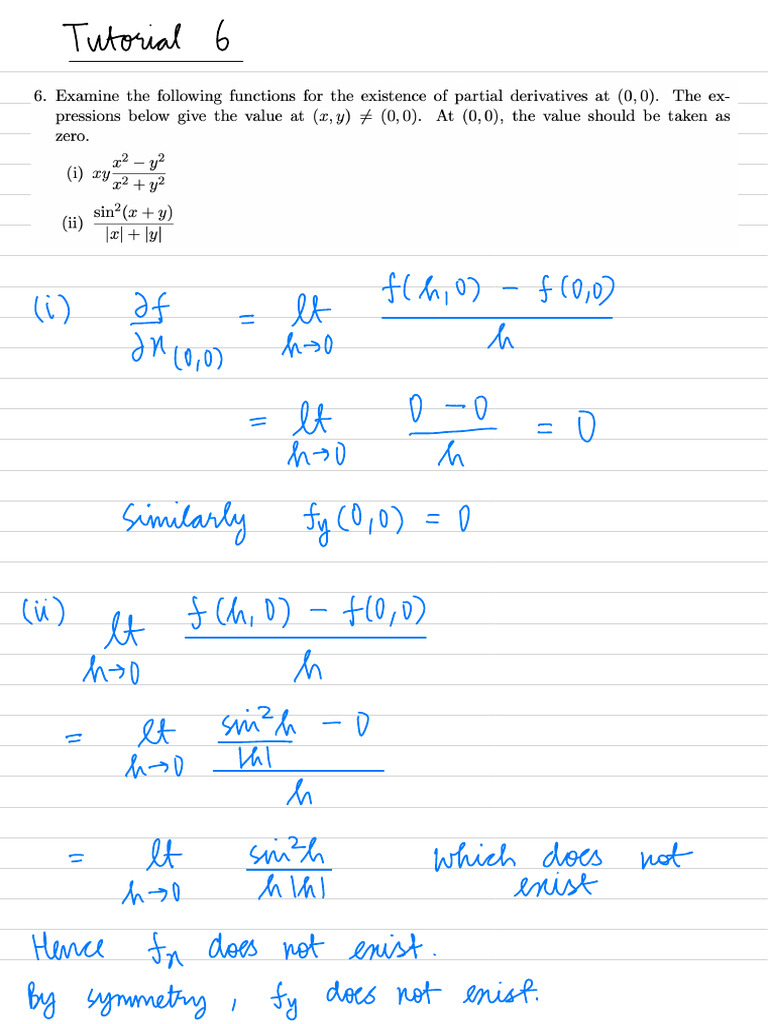 Tutorial 6
6. Examine the following functions for the existence of partial derivatives at (0, 0). The ex-
pressions below give the value at (x, y) ≠ (0, 0). At (0, 0), the value should be taken as
zero.
(i) xy (x² − y²)/(x² + y²)
(ii) sin²(x + y)/(|x| + |y|)
(i) ∂f/∂x (0,0) = lt h→0 (f(h,0) − f(0,0))/h
= lt h→0 (0 − 0)/h = 0
Similarly fy(0,0) = 0
(ii) lt h→0 (f(h,0) − f(0,0))/h
= lt h→0 (sin²h/|h| − 0)/h
= lt h→0 sin²h/(h|h|) which does not
exist
Hence fx does not exist.
By symmetry, fy does not exist.